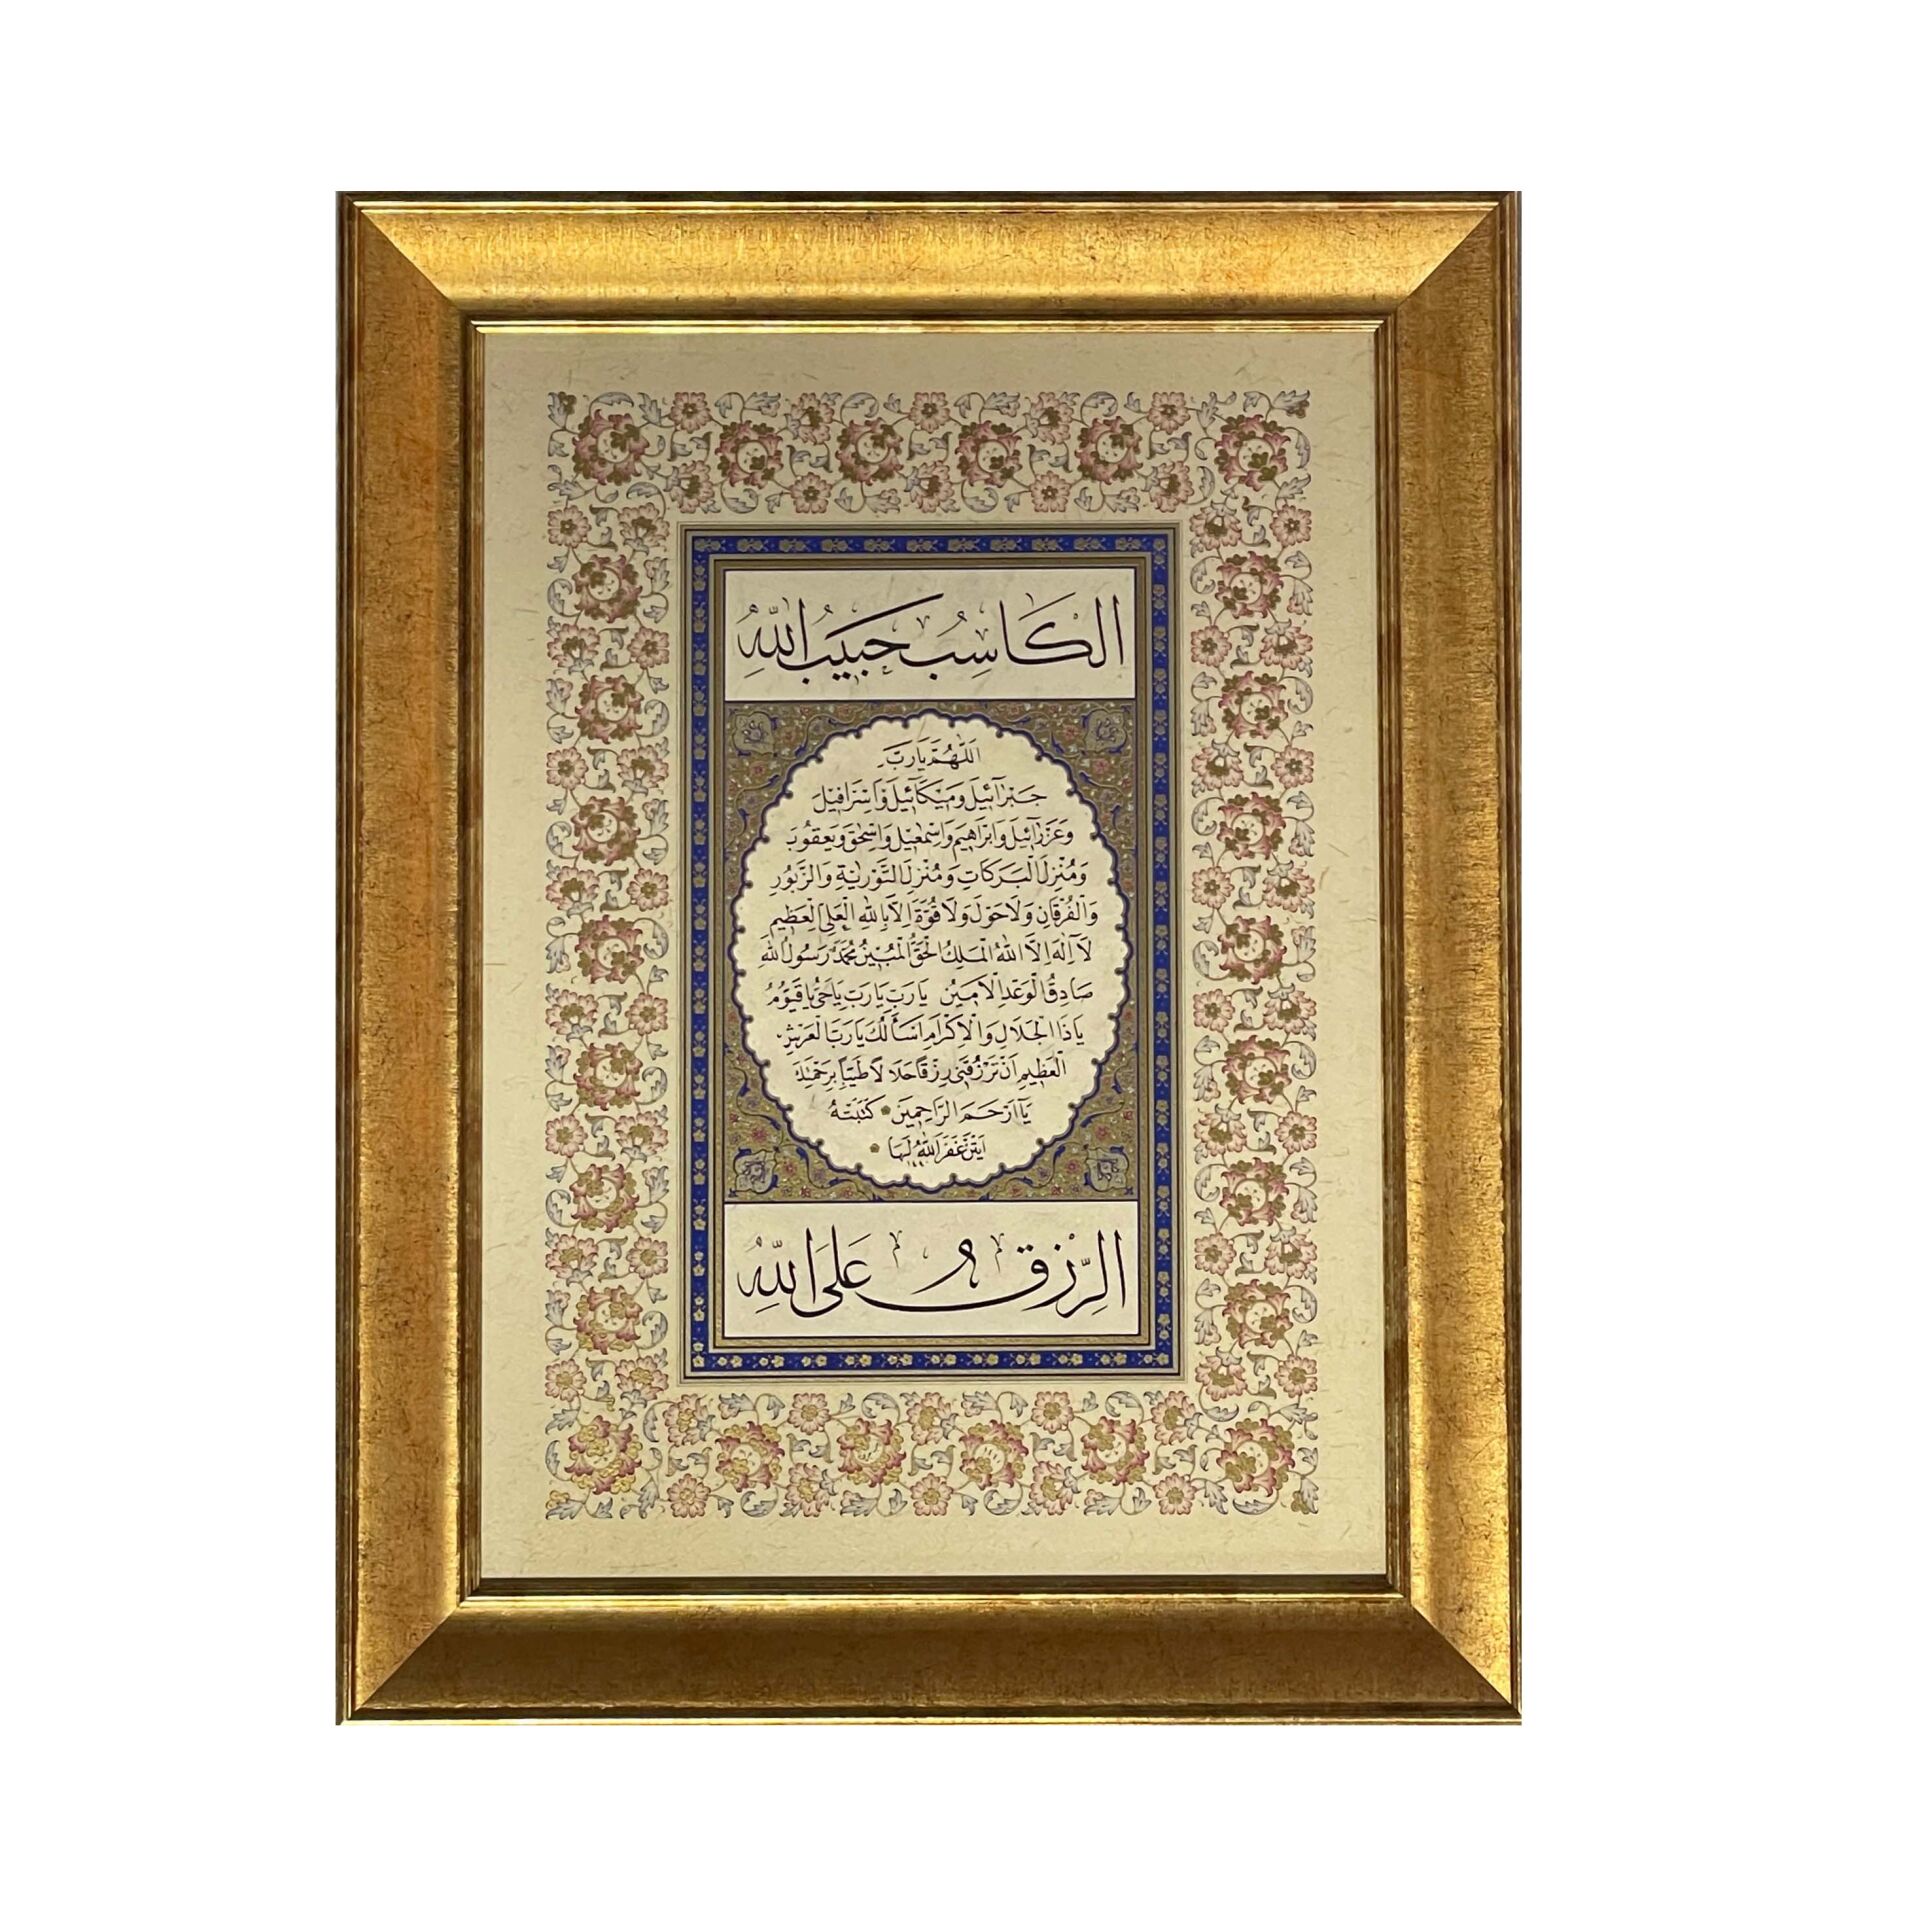 الكَاسِبُ حَبِيبُ اللّٰهِ
اَللّٰهُمَّ يَارَبَّ
جَبْرَآئِيلَ وَمِيْكَآئِيلَ وَاِسْرَافِيْلَ
وَعَزْرَآئِيلَ وَاِبْرَاهِيمَ وَاِسْمٰعِيْلَ وَاِسْحٰقَ وَيَعْقُوبَ
وَمُنْزِلَ الْبَرَكَاتِ وَمُنْزِلَ التَّوْرٰيةِ وَالزَّبُورِ
وَالْفُرْقَانِ وَلَاحَوْلَ وَلَاقُوَّةَ اِلَّابِاللّٰهِ الْعَلِىِّ الْعَظِيمِ
لَآاِلٰهَ اِلَّا اللّٰهُ الْمَلِكُ الْحَقُّ الْمُبِيْنُ مُحَمَّدٌ رَسُولُ اللّٰهِ
صَادِقُ الْوَعْدِ الْاَمِيْنُ يَارَبِّ يَارَبِّ يَاحَىُّ يَاقَيُّومُ
يَاذَا الْجَلَالِ وَالْاِكْرَامِ اَسْأَلُكَ يَارَبَّ الْعَرْشِ
الْعَظِيمِ اَنْ تَرْزُقَنِى رِزْقًا حَلَالًا طَيِّبًا بِرَحْمَتِكَ
يَآاَرْحَمَ الرَّاحِمِينَ كَتَبَتْهُ
اَيْتَنْ غَفَرَ اللّٰهُ لَهَا
الرِّزْقُ عَلَى اللّٰهِ